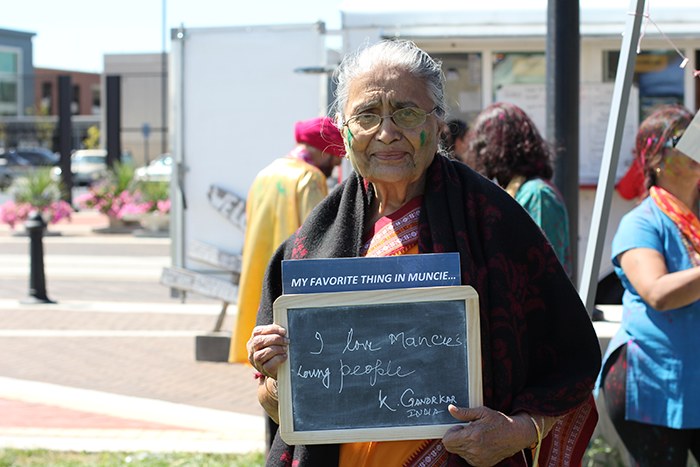 MY FAVORITE THING IN MUNCIE...
I love Muncie's
loving people
K. GANDRKAR
INDIA